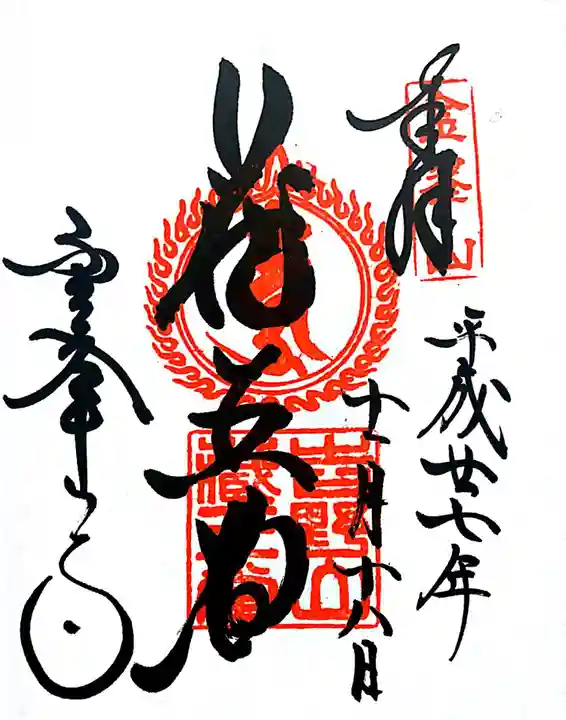 金峯山
奉拝
平成廿七年
十一月十八日
蔵王堂
吉野山
蔵王堂
峯山寺